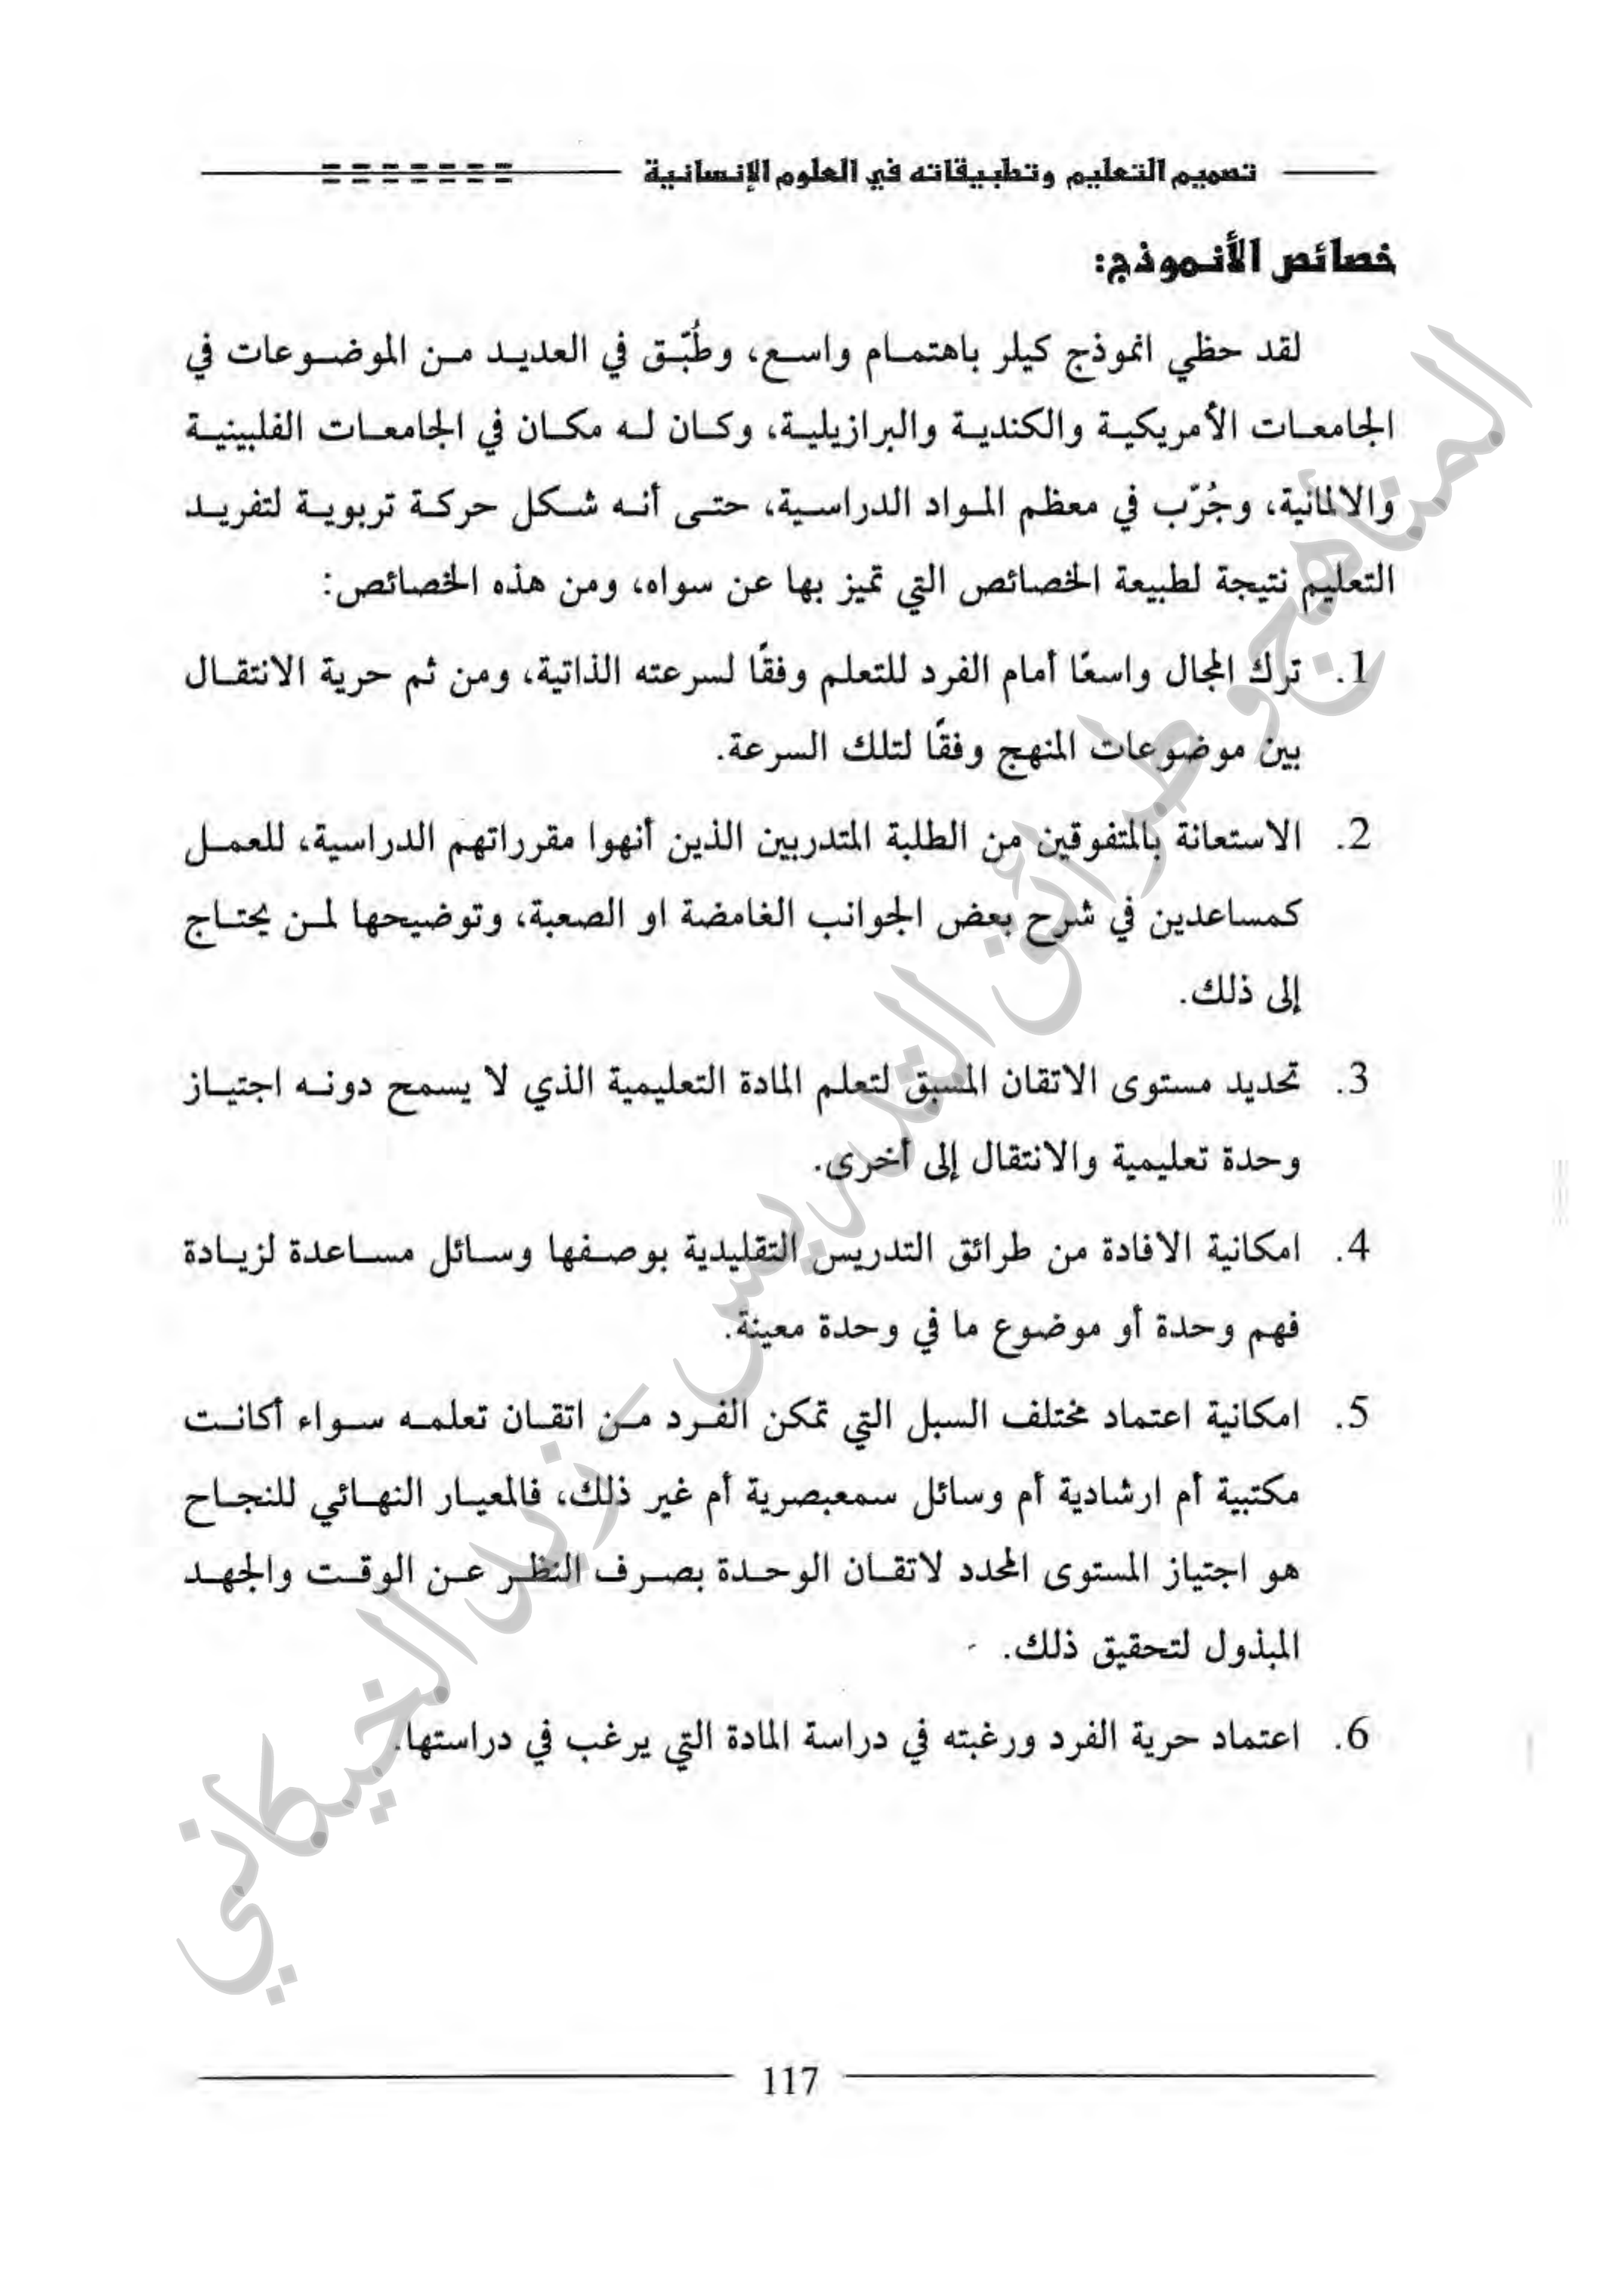 تصميم التعليم وتطبيقاته في العلوم الإنسانية
خصائص الأنموذج:
لقد حظي انموذج كيلر باهتمام واسع، وطُبّق في العديد من الموضوعات في
الجامعات الأمريكية والكندية والبرازيلية، وكان له مكان في الجامعات الفلبينية
والالمانية، وجُرّب في معظم المواد الدراسية، حتى أنه شكل حركة تربوية لتفريد
التعليم نتيجة لطبيعة الخصائص التي تميز بها عن سواه، ومن هذه الخصائص:
1. ترك المجال واسعًا أمام الفرد للتعلم وفقًا لسرعته الذاتية، ومن ثم حرية الانتقال
بين موضوعات المنهج وفقًا لتلك السرعة.
2. الاستعانة بالمتفوقين من الطلبة المتدربين الذين أنهوا مقرراتهم الدراسية، للعمل
كمساعدين في شرح بعض الجوانب الغامضة او الصعبة، وتوضيحها لمن يحتاج
إلى ذلك.
3. تحديد مستوى الاتقان المسبق لتعلم المادة التعليمية الذي لا يسمح دونه اجتياز
وحدة تعليمية والانتقال إلى أخرى.
4. امكانية الافادة من طرائق التدريس التقليدية بوصفها وسائل مساعدة لزيادة
فهم وحدة أو موضوع ما في وحدة معينة.
5. امكانية اعتماد مختلف السبل التي تمكن الفرد من اتقان تعلمه سواء أكانت
مكتبية أم ارشادية أم وسائل سمعبصرية أم غير ذلك، فالمعيار النهائي للنجاح
هو اجتياز المستوى المحدد لاتقان الوحدة بصرف النظر عن الوقت والجهد
المبذول لتحقيق ذلك.
6. اعتماد حرية الفرد ورغبته في دراسة المادة التي يرغب في دراستها.
117
المناهج وطرائق التدريس - زيد الخيكاني